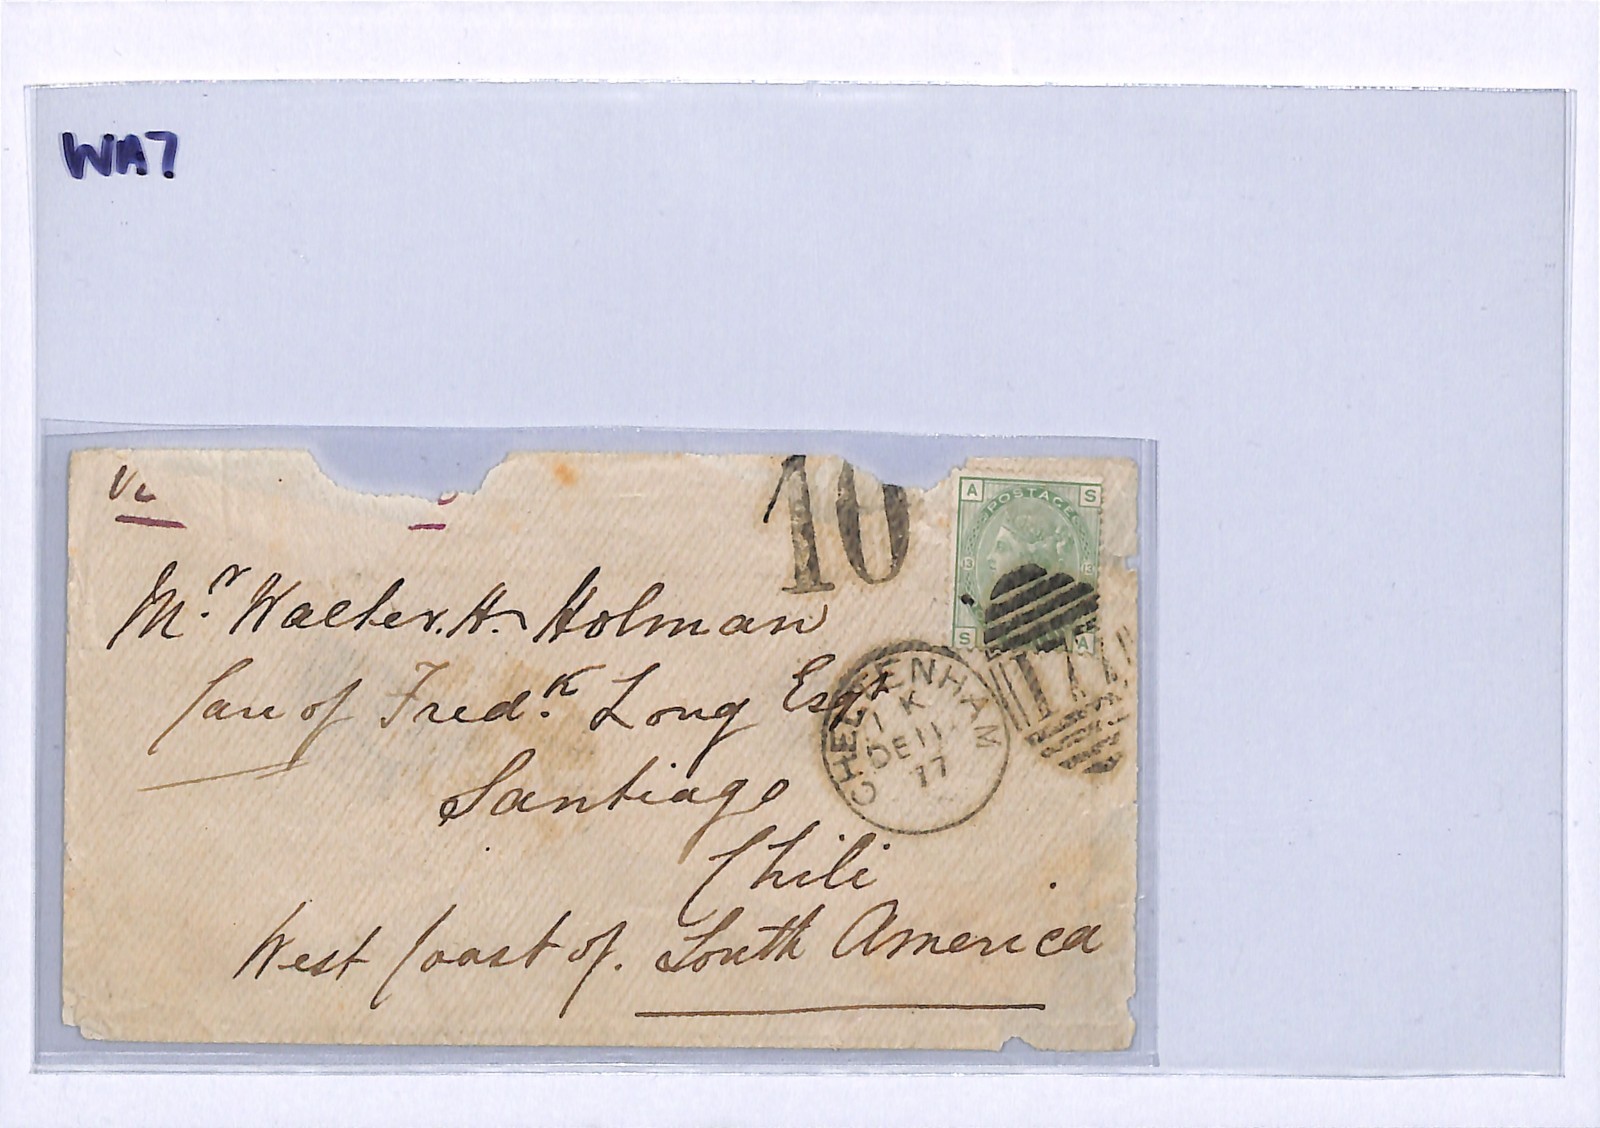 WA7
10
A S
POSTAGE
13 13
S A
Mr. Walter. H. Holman
Care of Fredk. Long Esqr
Santiago
Chili
West Coast of. South America
CHELTENHAM
1 K
DE 11
77
177